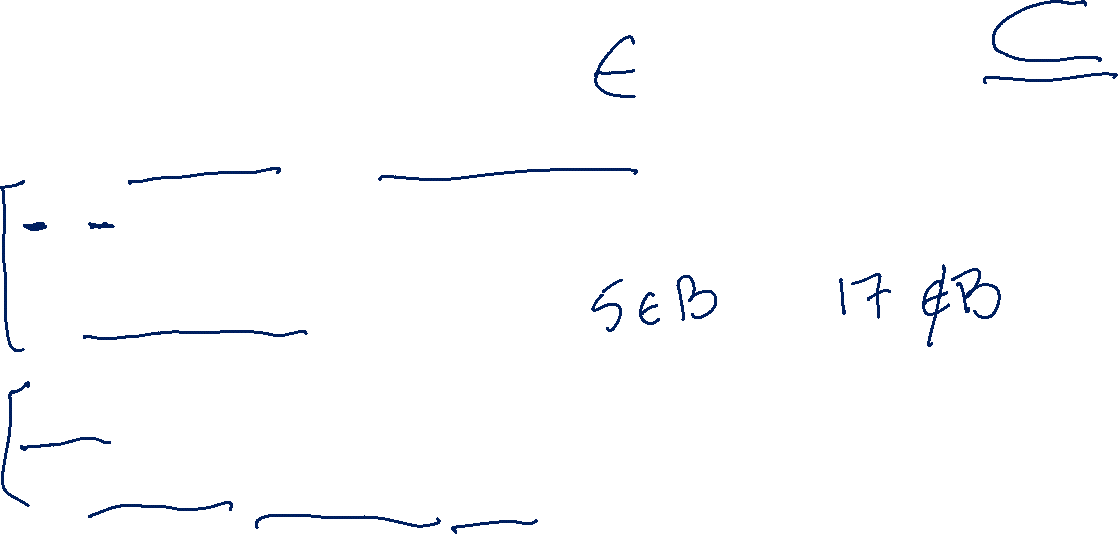 ∈ ⊆
5 ∈ B 17 ∉ B